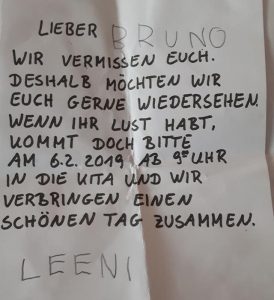 LIEBER BRUNO
WIR VERMISSEN EUCH.
DESHALB MÖCHTEN WIR
EUCH GERNE WIEDERSEHEN.
WENN IHR LUST HABT,
KOMMT DOCH BITTE
AM 6.2.2019, AB 9⁰⁰ UHR
IN DIE KITA UND WIR
VERBRINGEN EINEN
SCHÖNEN TAG ZUSAMMEN.
LEENI